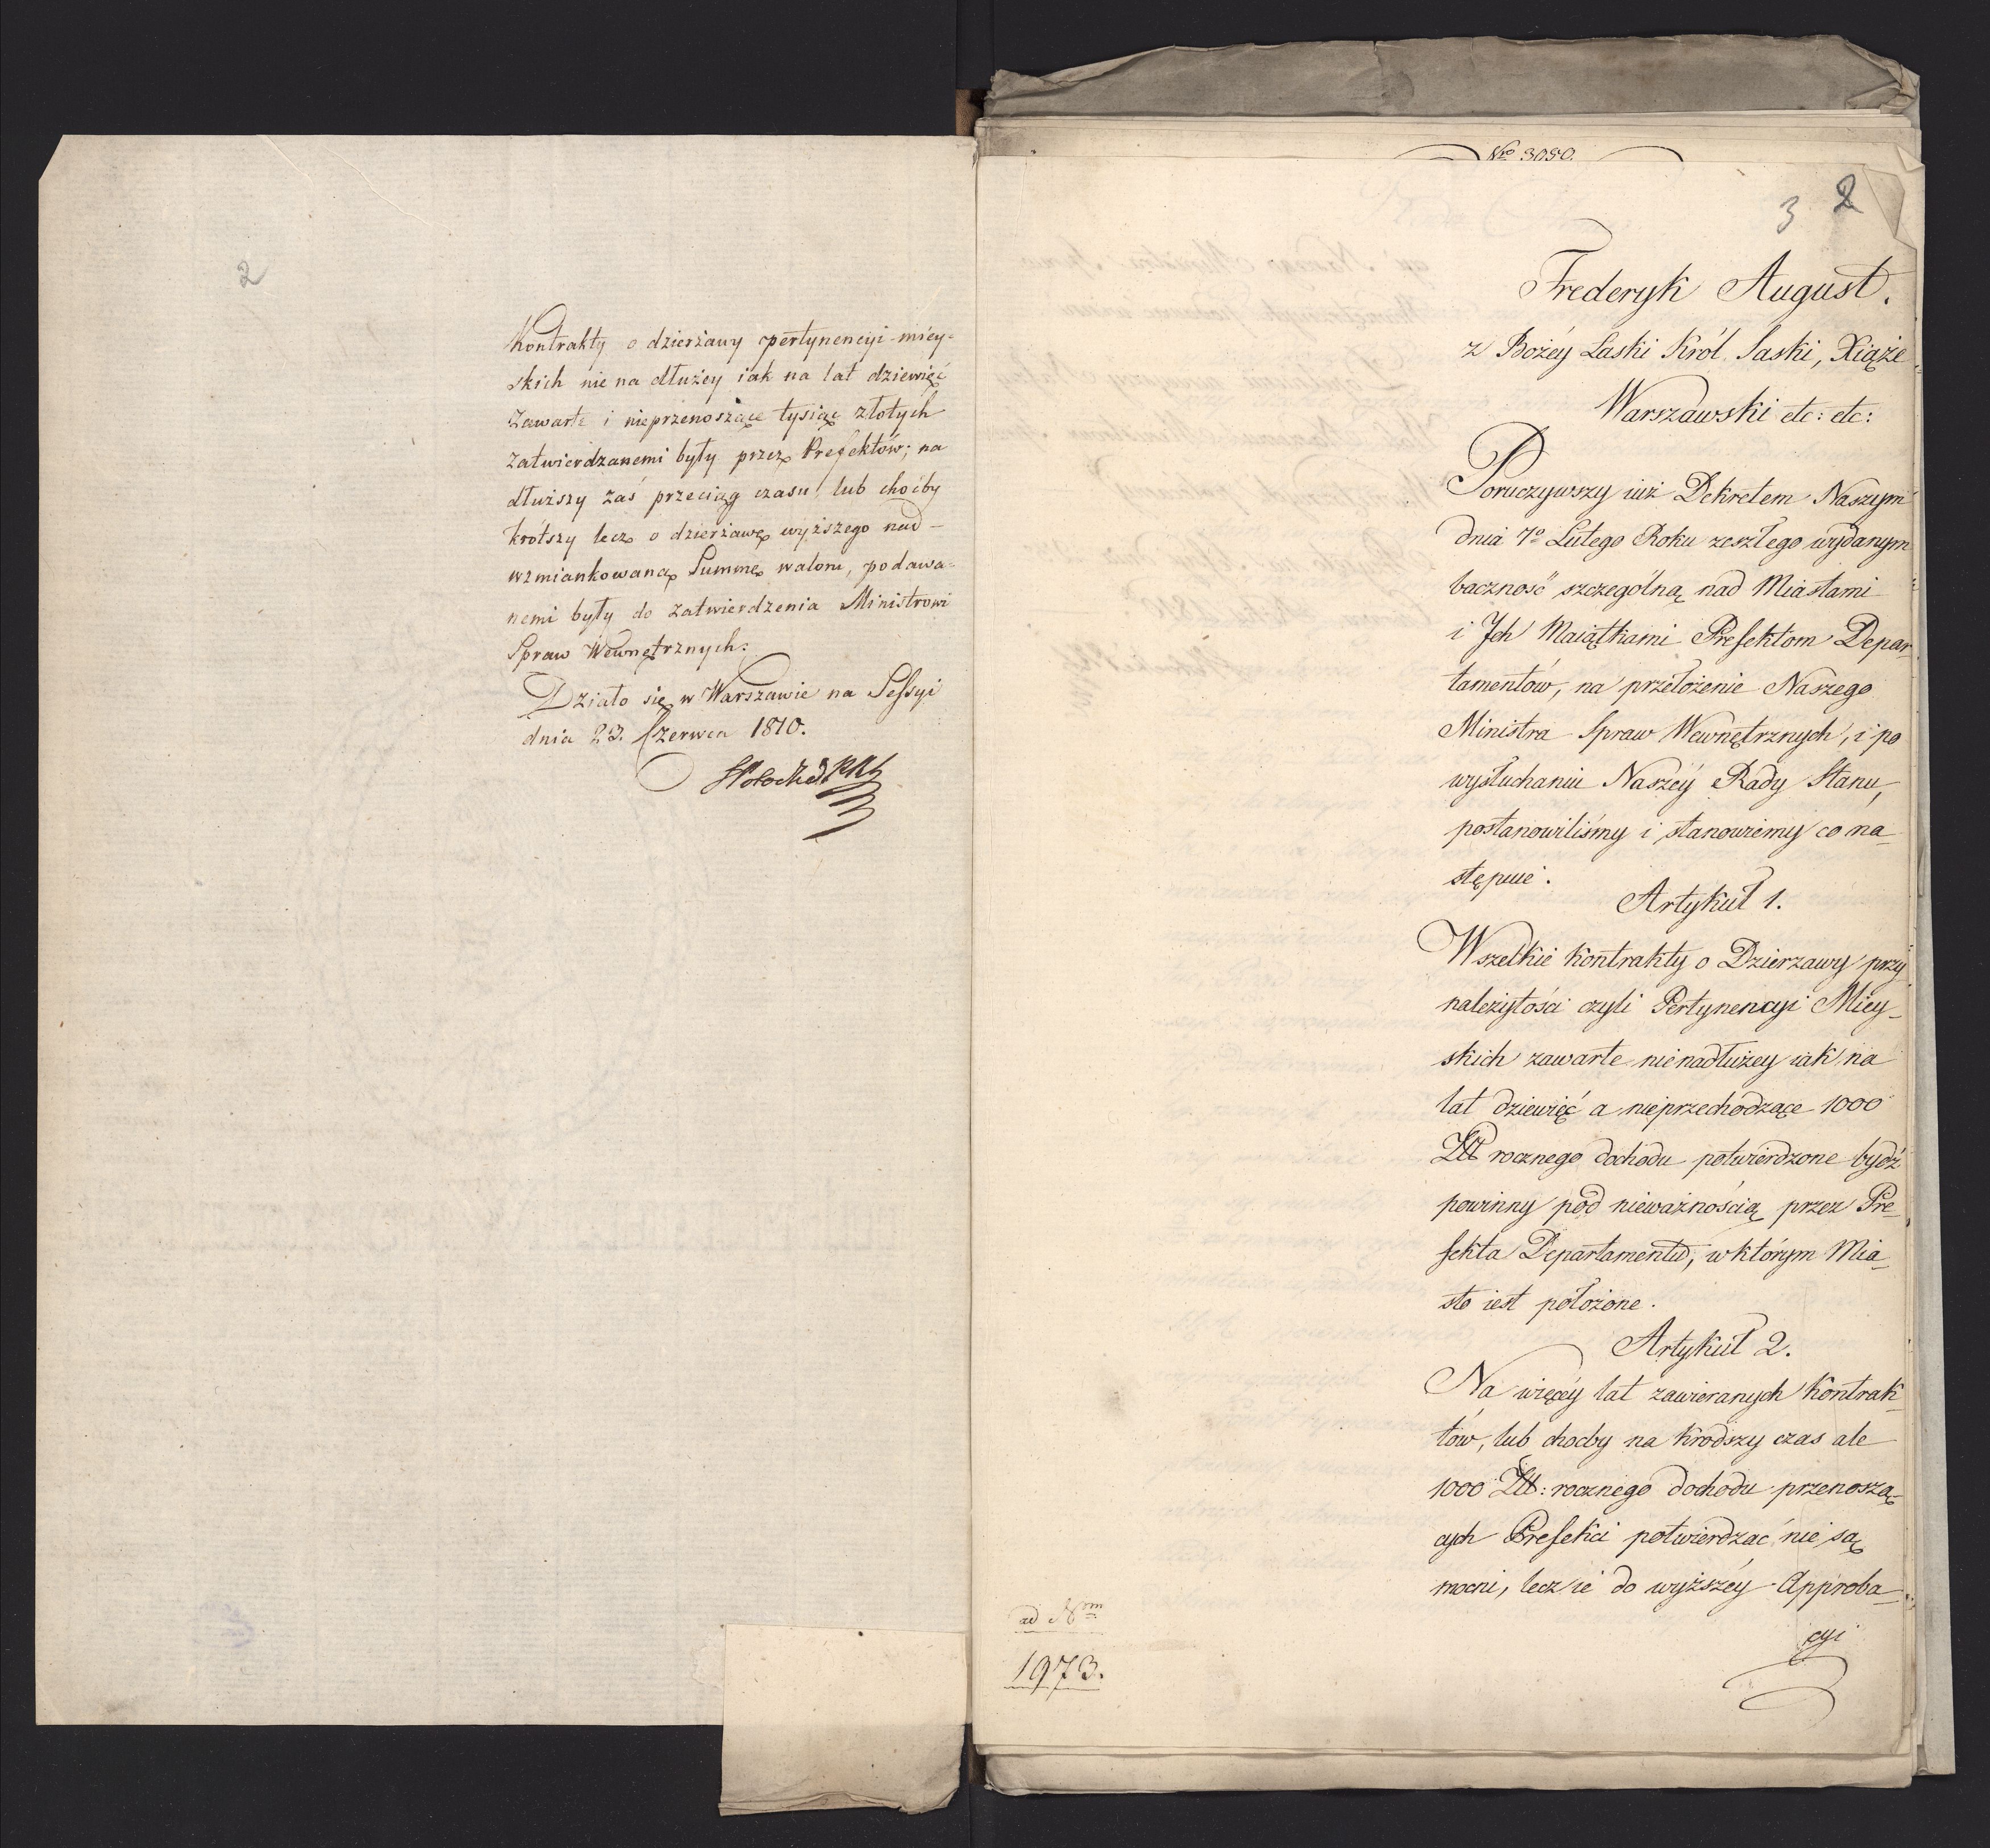 2
Kontrakty o dzierżawy pertynencyi miey-
skich nie na dłużey iak na lat dziewięć
zawarte i nieprzenoszące tysiąc złotych
zatwierdzanemi były przez Prefektów; na
dłuższy zaś przeciąg czasu, lub choćby
krótszy lecz o dzierżawę wyższego nad-
wzmiankowaną Summę waloru, podawa-
nemi były do zatwierdzenia Ministrowi
Spraw Wewnętrznych.
Działo się w Warszawie na Sessyi
dnia 23. Czerwca 1810.
Nro 3080.
3 2
Frederyk August.
z Bożéy Łaski Król Saski, Xiąże
Warszawski etc: etc:
Poruczywszy iuż Dekretem Naszym
dnia 7o Lutego Roku zeszłego wydanym
baczność szczególną nad Miastami
i Ich Maiątkami Prefektom Depar-
tamentów, na przełożenie Naszego
Ministra Spraw Wewnętrznych, i po
wysłuchaniu Naszéy Rady Stanu,
postanowiliśmy i stanowiemy co na-
stępuie.
Artykuł 1.
Wszelkie kontrakty o Dzierzawy przy
należytości czyli Pertynencyi Miey-
skich zawarte nienadłużey iak na
lat dziewięć a nieprzechodzące 1000
Złł rocznego dochodu potwierdzone bydź
powinny pod nieważnością przez Pre-
fekta Departamentu, w którym Mia-
sto iest położone.
Artykuł 2.
Na więcéy lat zawieranych Kontrak-
tów, lub choćby na krodszy czas ale
1000 Złł: rocznego dochodu przenoszą-
cych Prefekci potwierdzać nie są
mocni, lecz ie do wyższéy Approba-
cyi
ad Nrm
1973.